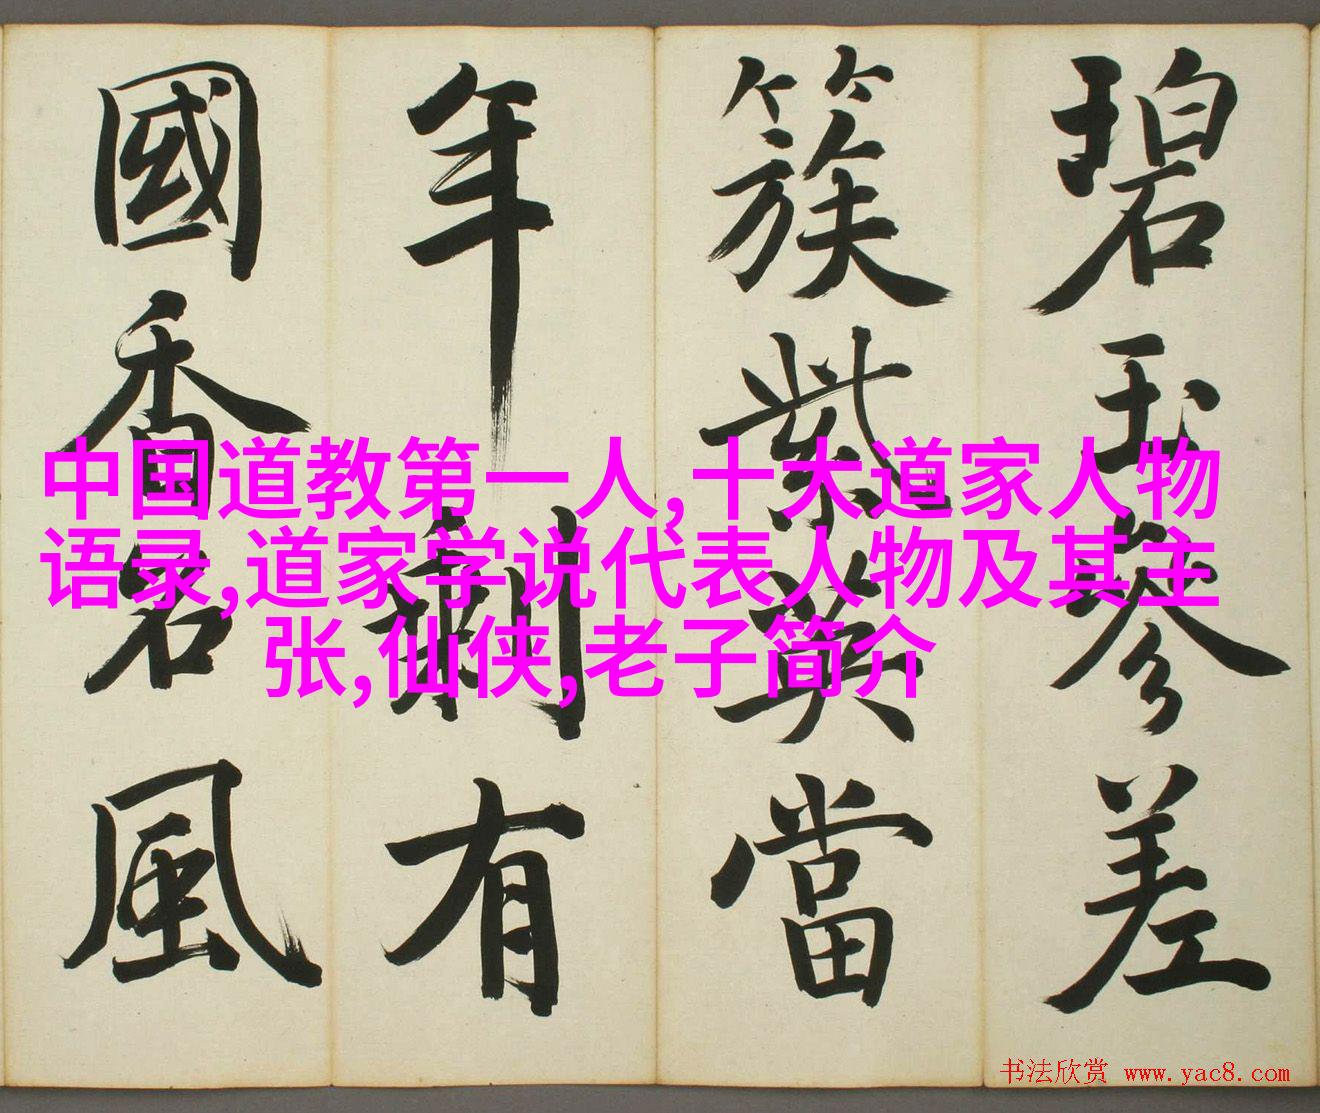 碧玉參差
簇紫英當
年剩有
國香名風
中国道教第一人,十大道家人物
语录,道家学说代表人物及其主
张,仙侠,老子简介
书法欣赏 www.yac8.com